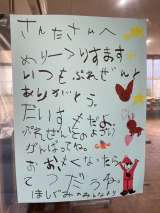 さんたさんへ
めりーくりすます
いつもぷれぜんと
ありがとう。
だいすきだよ。
ぷれぜんとのようい
がんばってね。
おもくないたら
てつだうね。
ほしぐみのみんなより